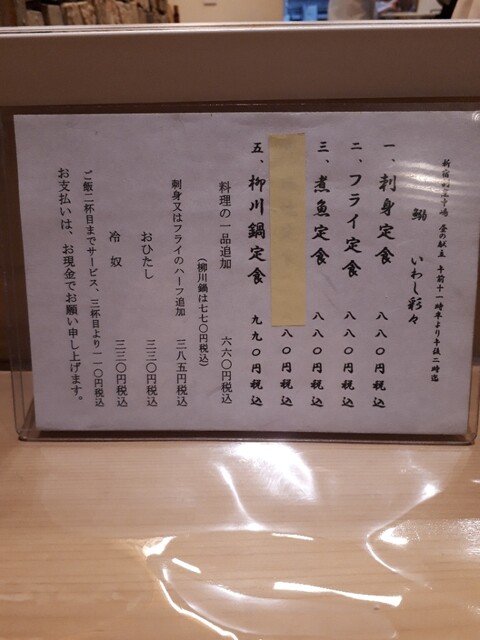 新宿 昼の献立 午前十一時半より午後二時迄
鰯 いわし彩々
一、刺身定食 八八〇円税込
二、フライ定食 八八〇円税込
三、煮魚定食 八八〇円税込
八〇円税込
五、柳川鍋定食 九九〇円税込
料理の一品追加 六六〇円税込
(柳川鍋は七七〇円税込)
刺身又はフライのハーフ追加 三八五円税込
おひたし 三三〇円税込
冷奴 三三〇円税込
ご飯二杯目までサービス、三杯目より一一〇円税込
お支払いは、お現金でお願い申し上げます。